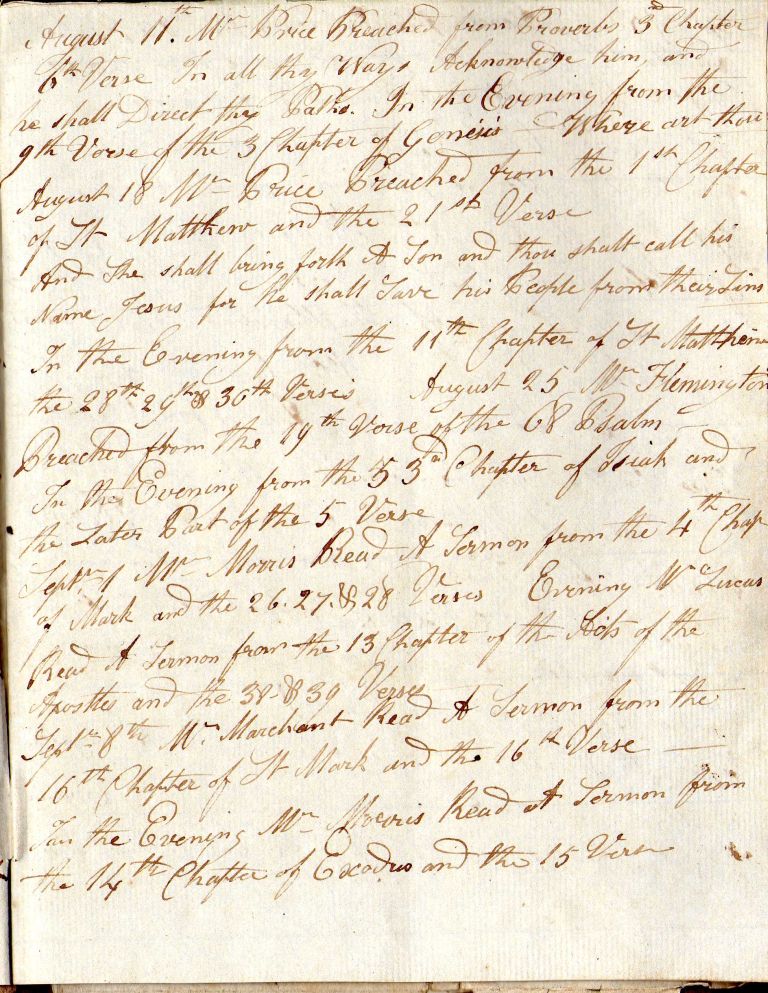 August 11th. Mr Price Preached from Proverbs 3nd Chapter
6th Verse In all thy Ways Acknowledge him, and
he shall Direct thy Paths. In the Evening from the
9th Verse of the 3 Chapter of Genesis — Where art thou
August 18 Mr Price Preached from the 1st Chapter
of St Matthew and the 21st Verse
And She shall bring forth A Son and thou shalt call his
Name Jesus for he shall Save his People from their Sins
In the Evening from the 11th Chapter of St Matthew
the 28th 29th & 30th Verses August 25 Mr Flemington
Preached from the 19th Verse of the 68 Psalm —
In the Evening from the 53rd Chapter of Isiah and
the Later Part of the 5 Verse
Septr 1 Mr Morris Read A Sermon from the 4th Chap
of Mark and the 26. 27. & 28 Verses Evening Mr Lucas
Read A Sermon from the 13 Chapter of the Acts of the
Apostles and the 38 & 39 Verses
Septr 8th Mr Marchant Read A Sermon from the
16th Chapter of St Mark and the 16th Verse —
In the Evening Mr Morris Read A Sermon from
the 14th Chapter of Exodus and the 15 Verse